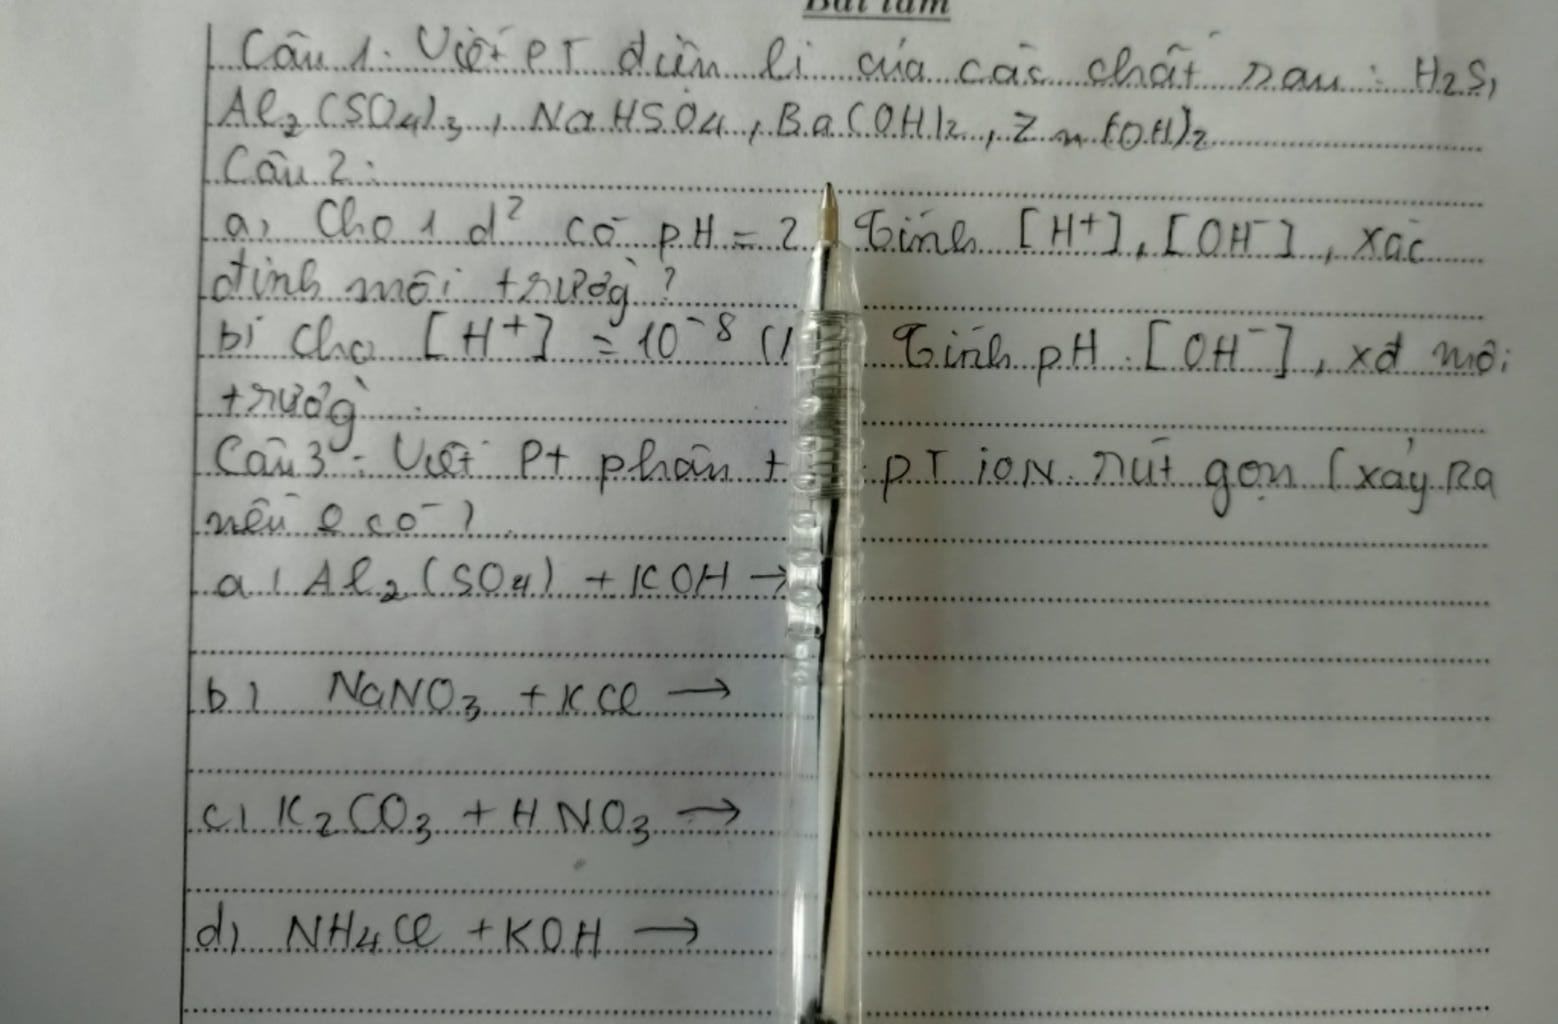 Bài làm
Câu 1: Viết PT điện li của các chất sau: H2S,
Al2(SO4)3, NaHSO4, Ba(OH)2, Zn(OH)2
Câu 2:
a, Cho 1 d² có pH = 2. Tính [H+], [OH-], xác
định môi trườg?
b, Cho [H+] = 10-8 Tính pH. [OH-], xđ môi
trườg
Câu 3: Viết Pt phân PT ioN rút gọn (xảy Ra
nếu có)
a) Al2(SO4) + KOH →
b) NaNO3 + KCl →
c) K2CO3 + HNO3 →
d) NH4Cl + KOH →